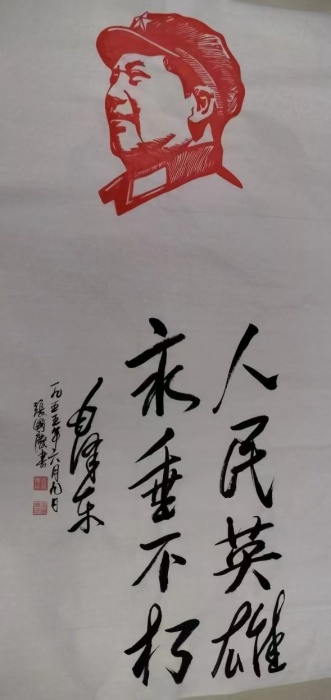 人民英雄
永垂不朽
毛泽东
一九五五年六月九日